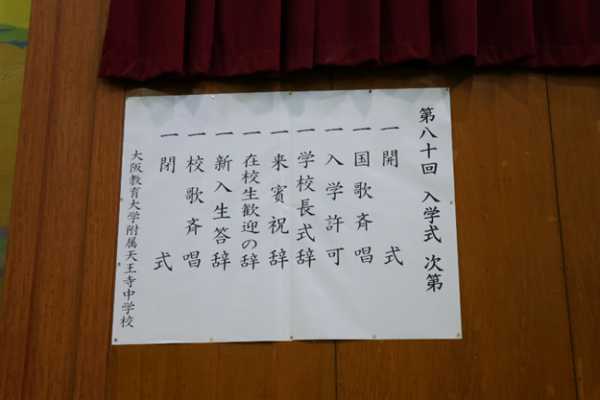 第八十回 入学式 次第
一 開式
一 国歌斉唱
一 入学許可
一 学校長式辞
一 来賓祝辞
一 在校生歓迎の辞
一 新入生答辞
一 校歌斉唱
一 閉式
大阪教育大学附属天王寺中学校